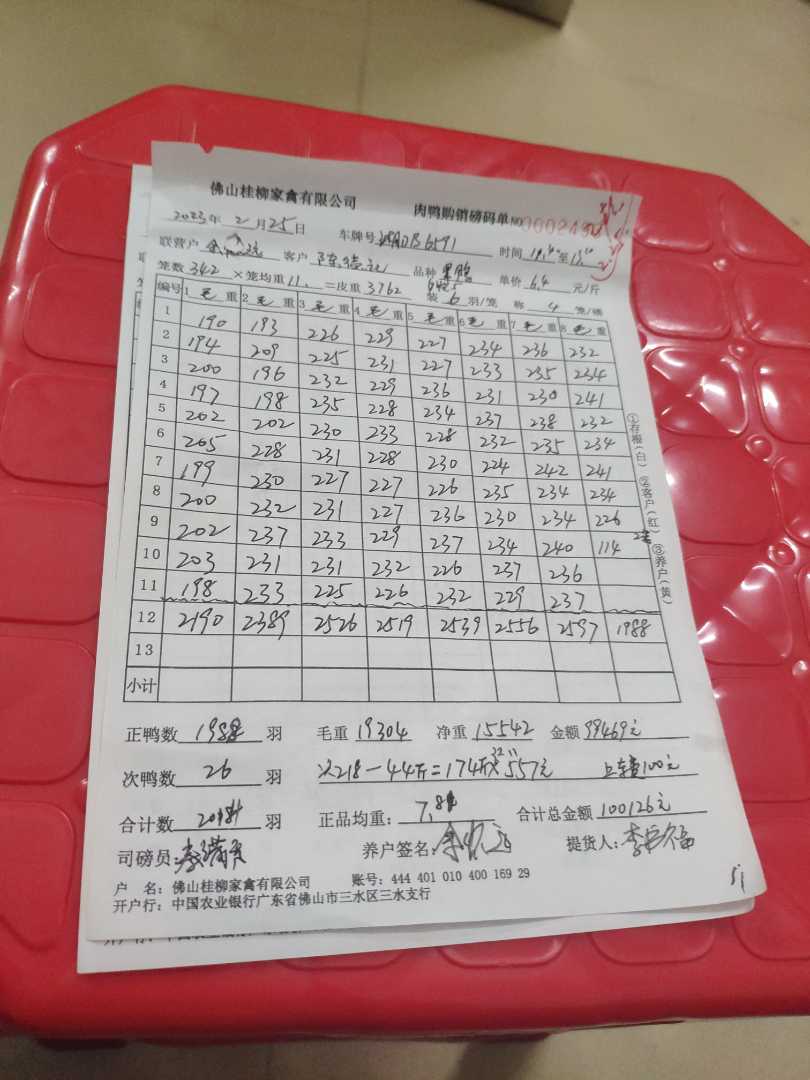 佛山桂柳家禽有限公司 肉鸭购销磅码单 NO
2023年 2月25日 车牌号 B6591 时间 至
联营户 客户 陈 品种 单价 6.4 元/斤
笼数 342 ×笼均重 11. =皮重 3762 装 6 羽/笼 称 4 笼/磅
编号 1 毛 重 2 毛 重 3 毛 重 4 毛 重 5 毛 重 6 毛 重 7 毛 重 8 毛 重
1 190 193 226 229 227 234 236 232
2 194 209 225 231 227 233 235 234
3 200 196 232 229 236 231 230 241
4 197 198 235 228 234 237 238 232
5 202 202 230 233 228 232 235 234
6 205 228 231 228 230 224 242 241
7 199 230 227 227 226 235 234 234
8 200 232 231 227 236 230 234 226
9 202 237 233 229 237 234 240 114
10 203 231 231 232 226 237 236
11 198 233 225 226 232 229 237
12 2190 2389 2526 2519 2539 2556 2597 1988
13
小计
①存根(白) ②客户(红) ③养户(黄)
正鸭数 1988 羽 毛重 19304 净重 15542 金额 99469元
次鸭数 26 羽 218-44斤=174斤×3.2 557元 上车费100元
合计数 羽 正品均重: 7.8 合计总金额 100126元
司磅员: 养户签名: 提货人: 李
户 名: 佛山桂柳家禽有限公司 账号: 444 401 010 400 169 29
开户行: 中国农业银行广东省佛山市三水区三水支行